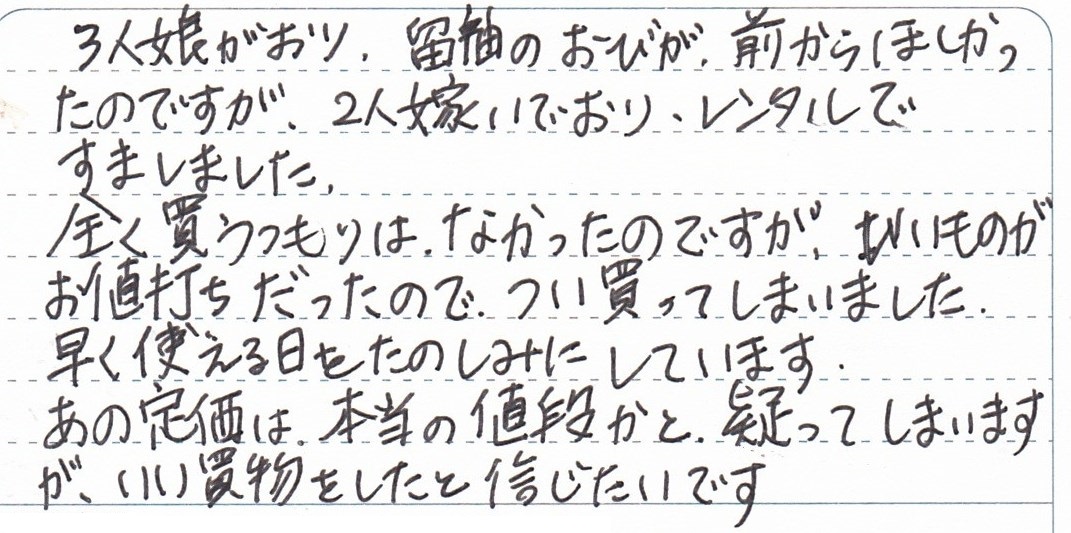 3人娘がおり、留袖のおびが、前からほしかっ
たのですが、2人嫁いでおり、レンタルで
すましました、
全く買うつもりは、なかったのですが、いいものが
お値打ちだったので、つい買ってしまいました.
早く使える日をたのしみにしています.
あの定価は、本当の値段かと、疑ってしまいます
が、いい買物をしたと信じたいです